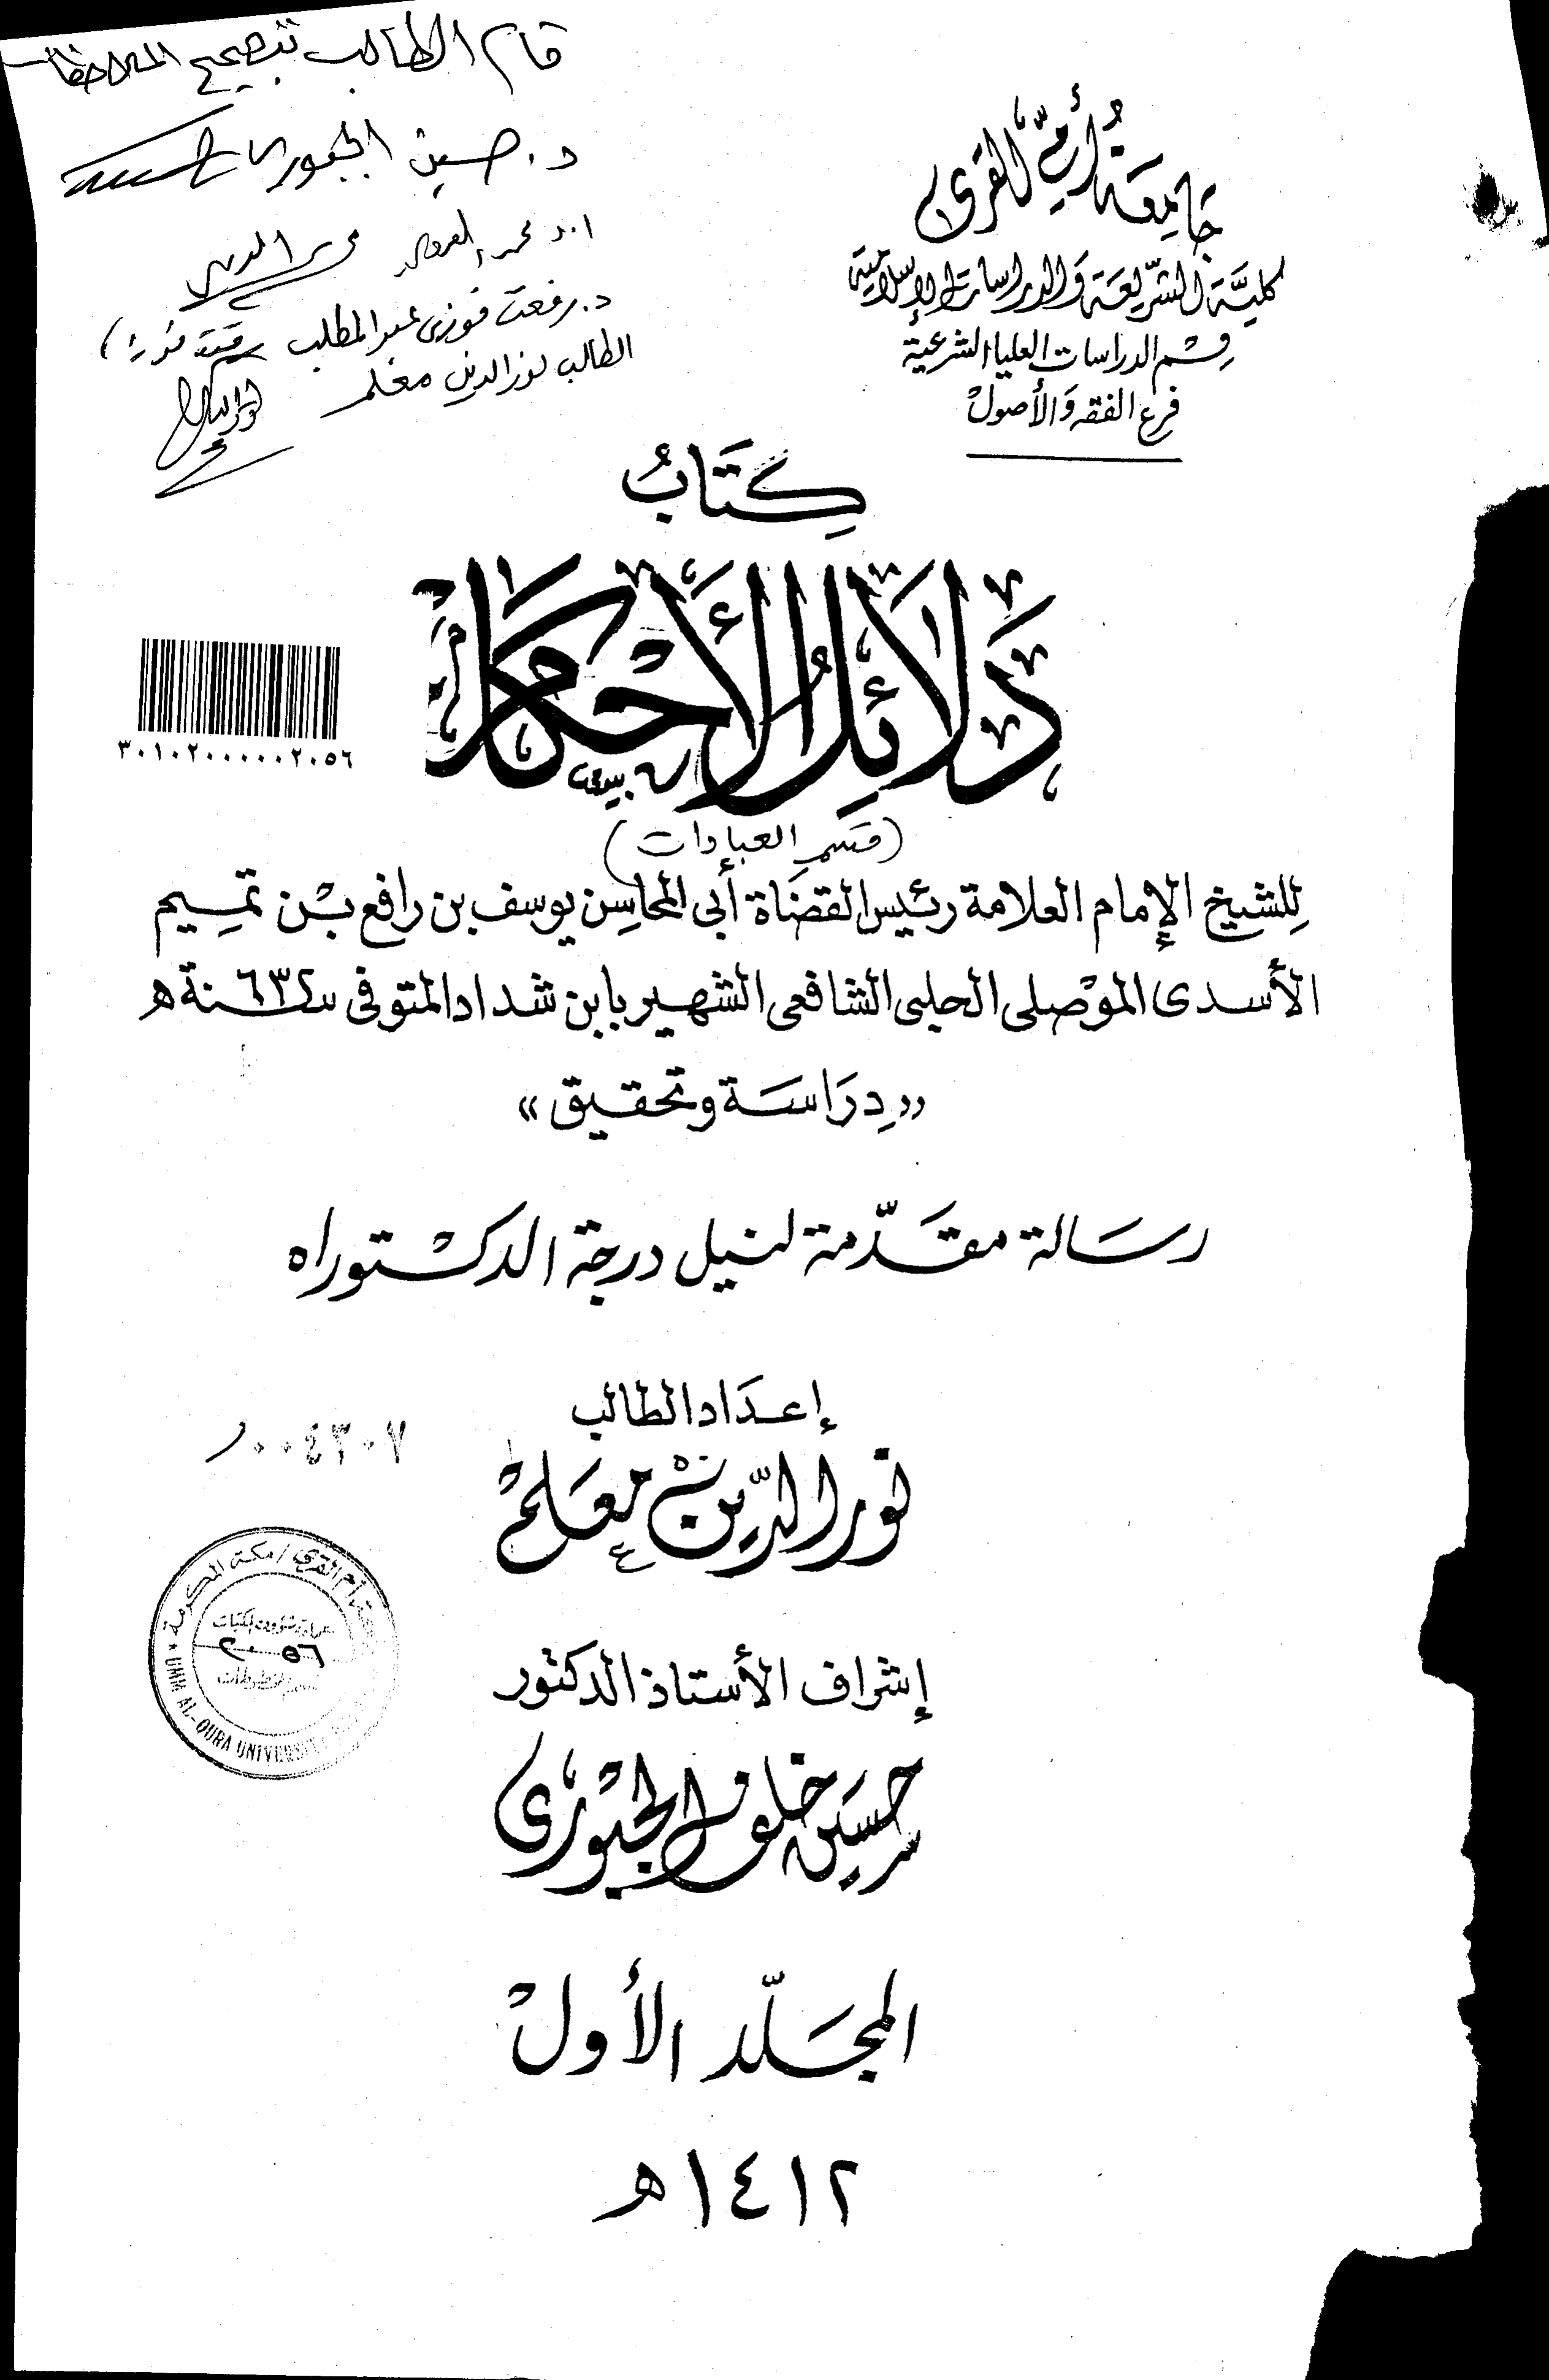 قام الطالب بتصحيح الملاحظات
د. حسين الجبوري
د. رفعت فوزى عبد المطلب
الطالب نور الدين معلم
جَامِعَة أُمّ القرى
كليَّة الشّريعَة وَالدراسات الإسلاميّة
قسْم الدراسات العليا الشرعية
فرع الفقه وَالأصول
كِتَابُ
دَلَائِلُ الأَحْكَام
٣٠١٠٢٠٠٠٠٠٠٢٠٥٦
(قسم العبادات)
لِلشيخ الإمام العلامة رئيس القضَاة أبى المحاسِن يوسف بن رافع بْن تمِسيم
الأسدى الموْصلى الحلبى الشافعى الشهير بابن شداد المتوفى سنة ٦٣٢ه
«دِرَاسَة وتحقيق»
رسَالة مقَدّمة لنيل درجة الدكتوراه
إعدَاد الطالب
نور الدّين معَلم
٠٠٤٣٠٧
أم القرى / مكة المكرمة
٢٠٥٦
UMM AL-QURA UNIVERSITY
إشراف الأستاذ الدكتور
حسَين خلف الجبورى
المجَلّد الأول
١٤١٢ه